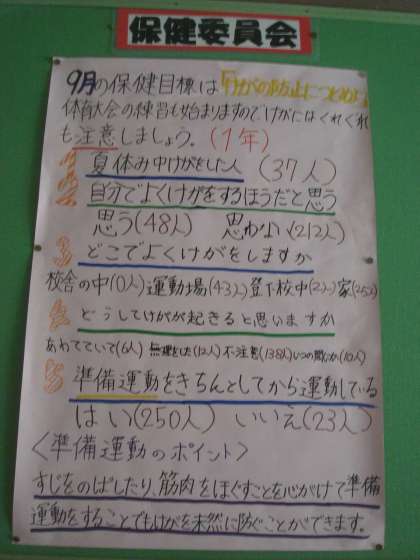 保健委員会
9月の保健目標は「けがの防止につとめよう
体育大会の練習も始まりますのでけがにはくれぐれ
も注意しましょう。(1年)
夏休み中けがをした人 (37人)
自分でよくけがをするほうだと思う
思う(48人) 思わない(212人)
どこでよくけがをしますか
校舎の中(10人)運動場(43人)登下校中(2人)家(25人)
どうしてけがが起きると思いますか
あわてていて(6人) 無理をした(12人)不注意(138人)いつの間にか(10人)
準備運動をきちんとしてから運動している
はい(250人) いいえ(23人)
〈準備運動のポイント〉
すじをのばしたり、筋肉をほぐすことを心がけて準備
運動をすることでもけがを未然に防ぐことができます。